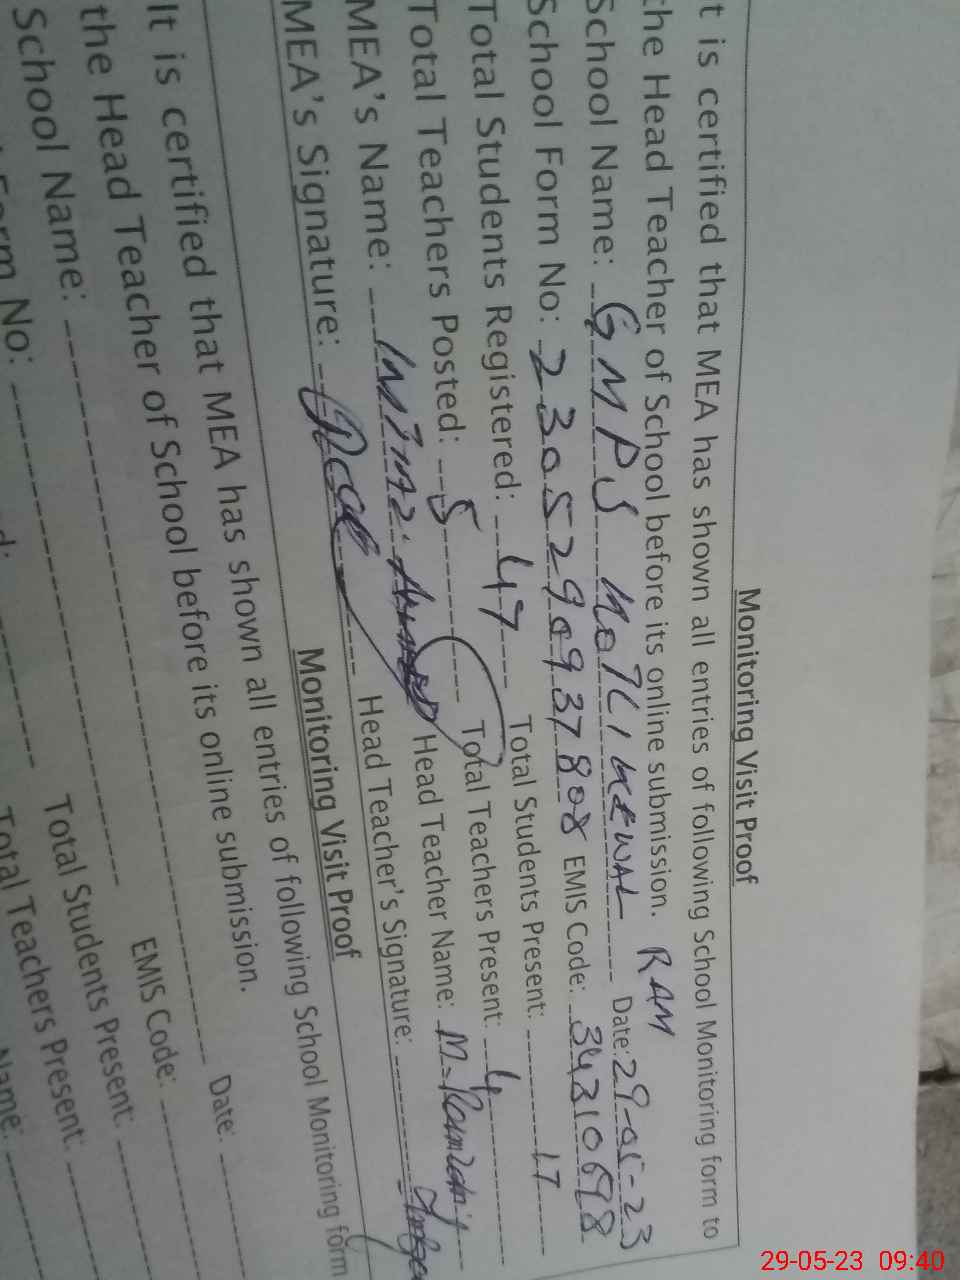 Monitoring Visit Proof
t is certified that MEA has shown all entries of following School Monitoring form to
the Head Teacher of School before its online submission.
School Name: GMPS KOTLI KEWAL RAM Date: 29-05-23
School Form No: 2305290937808 EMIS Code: 34310698
Total Students Registered: 47 Total Students Present: 17
Total Teachers Posted: 5 Total Teachers Present: 4
MEA's Name: Head Teacher Name:
MEA's Signature: Head Teacher's Signature:
Monitoring Visit Proof
It is certified that MEA has shown all entries of following School Monitoring form
the Head Teacher of School before its online submission.
School Name: Date:
Form No: EMIS Code:
Total Students Present:
Total Teachers Present:
Name:
29-05-23 09:40